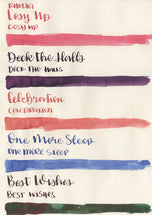 Rhodia
Cosy Up
COSY UP
Deck The Halls
DECK THE HALLS
Celebration
CELEBRATION
One More Sleep
ONE MORE SLEEP
Best Wishes
BEST WISHES